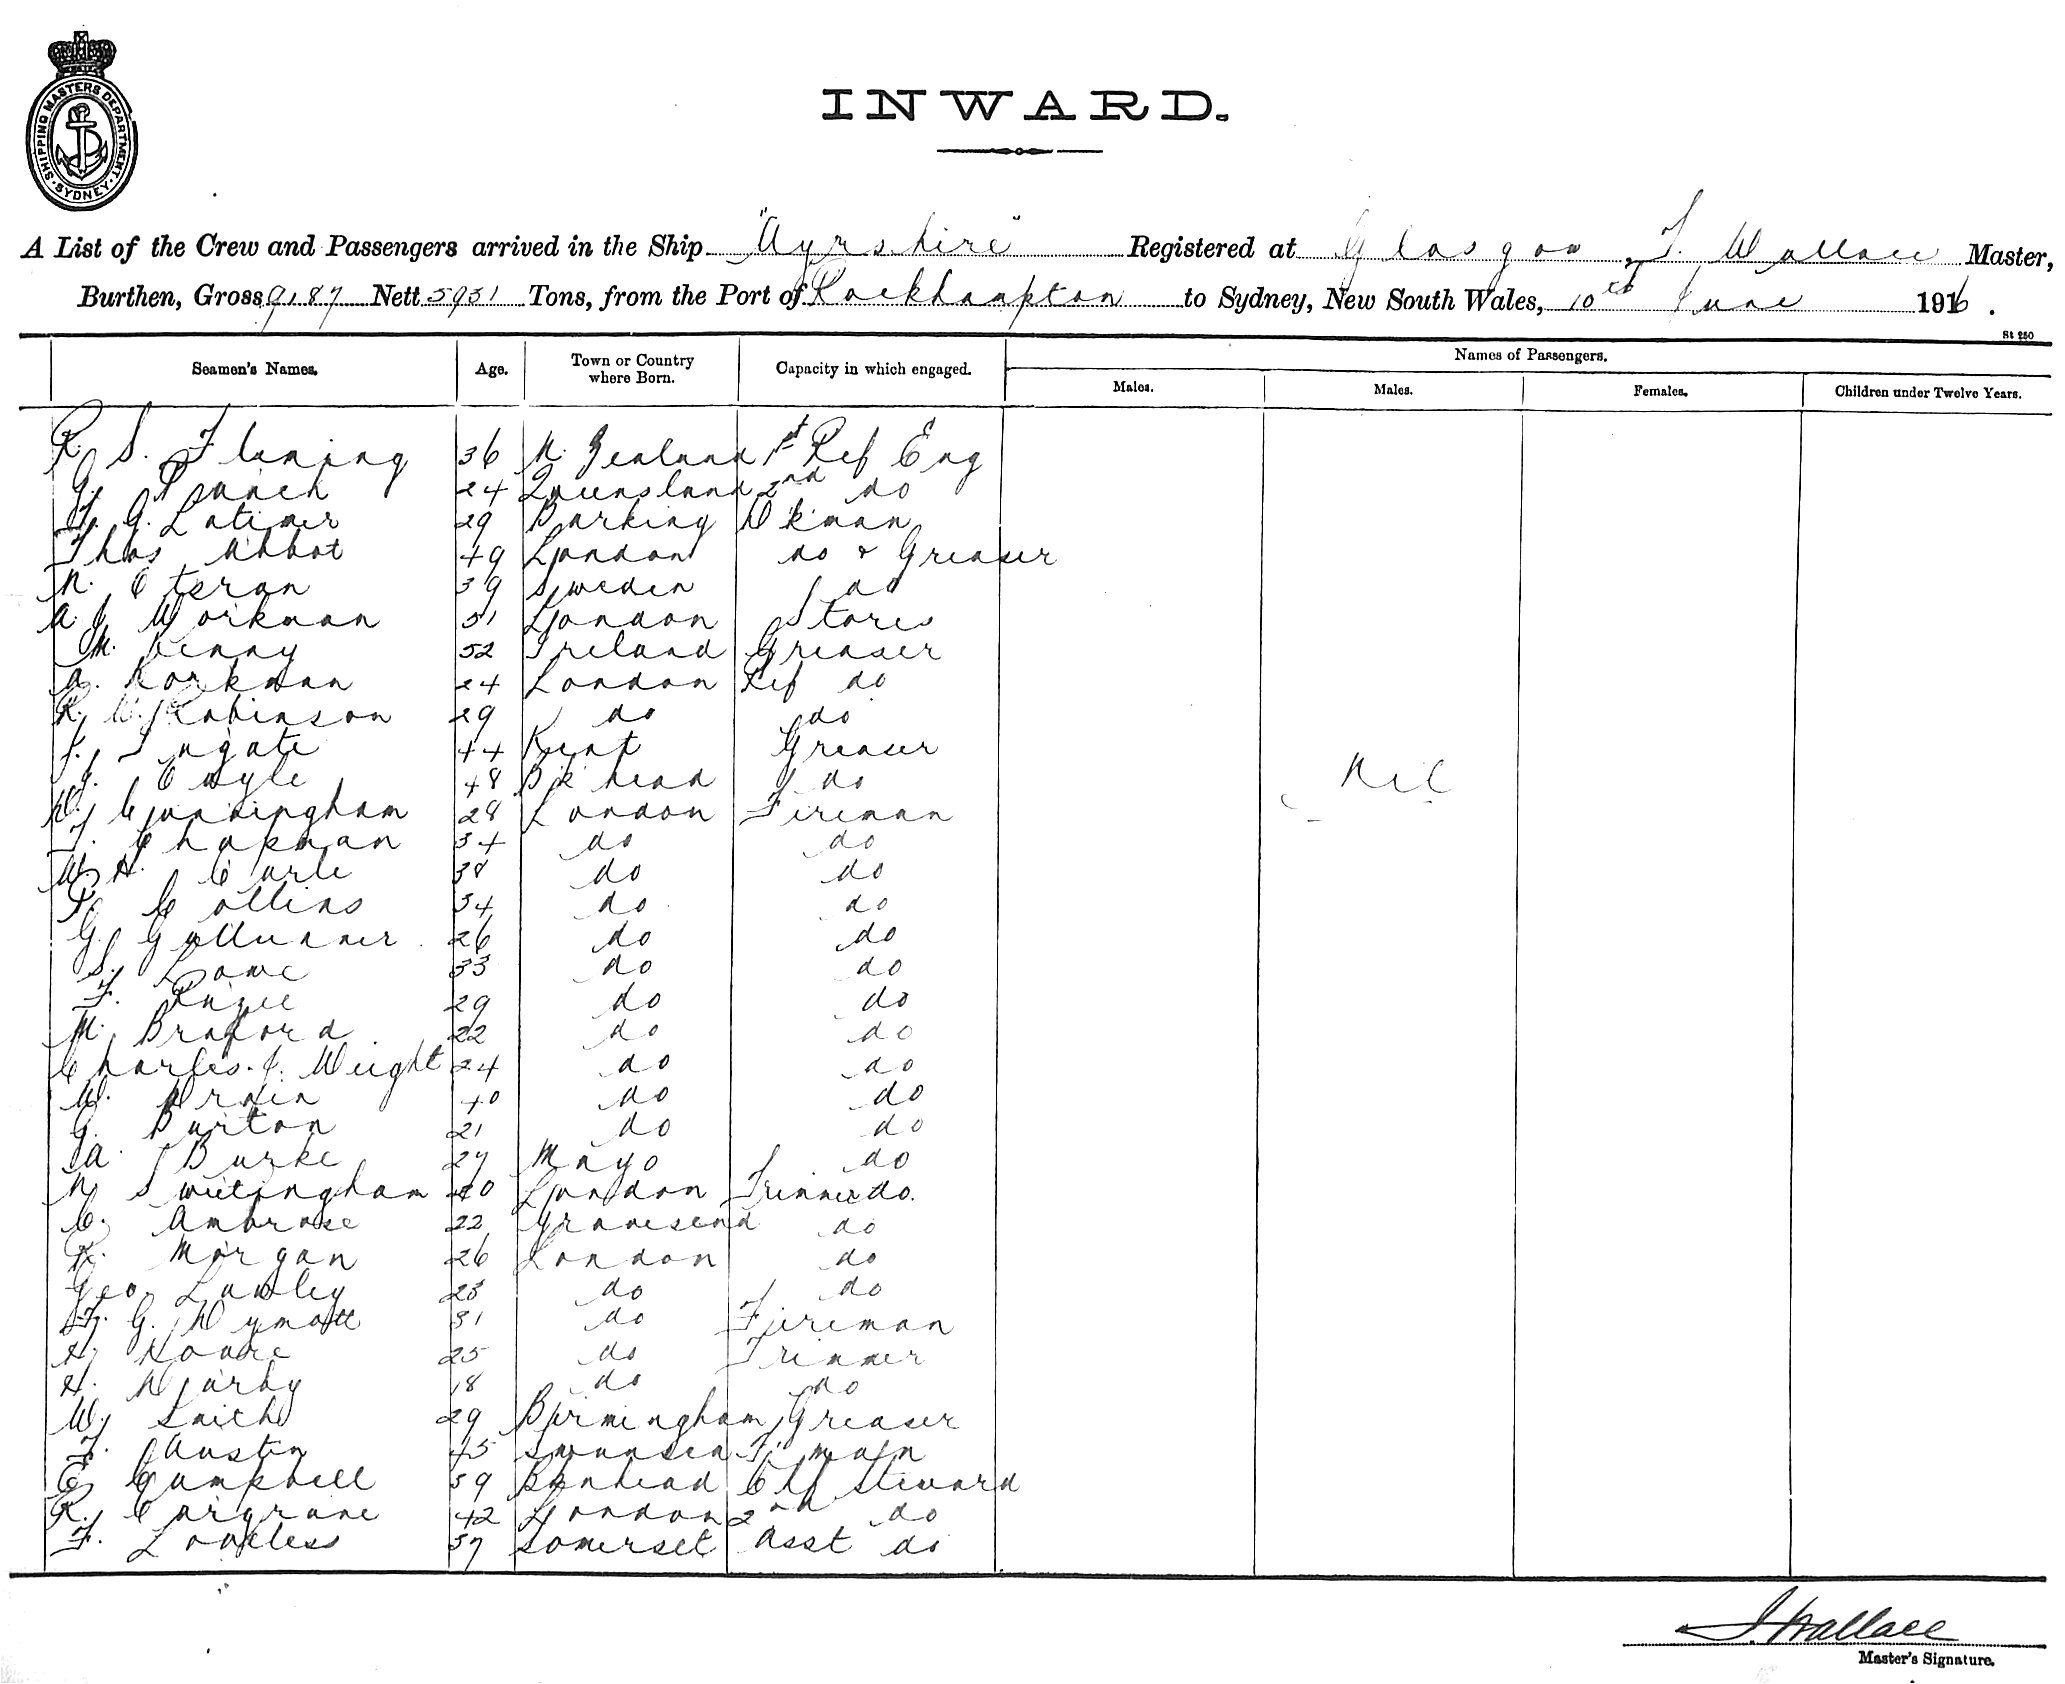 SHIPPING MASTERS DEPARTMENT. SYDNEY.
INWARD.
A List of the Crew and Passengers arrived in the Ship "Ayrshire" Registered at Glasgow, F. Wallace Master,
Burthen, Gross 9187 Nett 5931 Tons, from the Port of Rockhampton to Sydney, New South Wales, 10th June 1916.
St 250
Seamen's Names. Age. Town or Country where Born. Capacity in which engaged. Names of Passengers.
Males. Males. Females. Children under Twelve Years.
R. S. Fleming 36 N. Zealand 1st Ref Eng
G. 24 Queensland 2nd do
F. G. Latimer 29 Barking Dkman
Thos Abbot 49 London do & Greaser
N. 39 Sweden do
A. J. Workman 51 London Stores
M. Kenny 52 Ireland Greaser
A. Workman 24 London Ref do
R. Robinson 29 do do
44 Kent Greaser
48 Bk head do
Nil
D. Cunningham 28 London Fireman
F. Chapman 34 do do
W. H. Earle 38 do do
Collins 34 do do
G. 26 do do
S. Lowe 33 do do
F. 29 do do
M. Bradford 22 do do
Charles. J. Weight 24 do do
W. Drain 40 do do
G. Burton 21 do do
A. Burke 27 Mayo do
Swetingham 20 London Trimmer do.
C. Ambrose 22 Gravesend do
R. Morgan 26 London do
Geo Lawley 23 do do
F. G. Dymott 31 do Fireman
H. 25 do Trimmer
H. Darby 18 do do
W. Smith 29 Birmingham Greaser
F. Austin 45 Swansea Fiman
E. Campbell 39 Bknhead Chf Steward
R. Cargrave 42 London 2nd do
F. Loveless 37 Somerset Asst do
F. Wallace
Master's Signature.